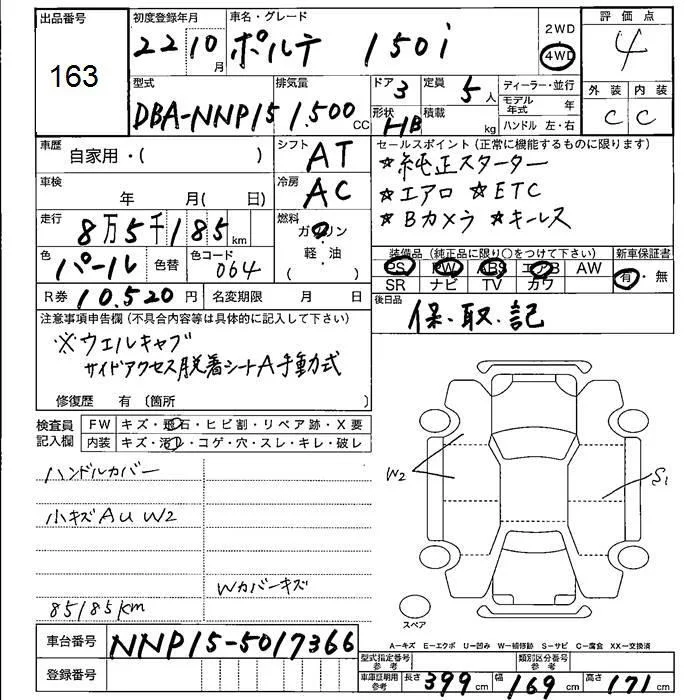 出品番号
163
初度登録年月
22 10月
車名・グレード
ポルテ 150i
2WD
4WD
評価点
4
型式
DBA-NNP15
排気量
1.500CC
ドア 3
形状 HB
定員 5人
積載 kg
ディーラー・並行
モデル年式 年
ハンドル 左・右
外装 内装
C C
車歴 自家用・( )
シフト AT
車検 年 月( 日)
冷房 AC
走行 8万5千185km
燃料 ガソリン
軽・油
( )
色 パール
色替
色コード 064
R券 10.520円
名変期限 月 日
セールスポイント(正常に機能するものに限ります)
☆純正スターター
☆エアロ ☆ETC
☆Bカメラ ☆キーレス
装備品(純正品に限り○をつけて下さい)
PS PW ABS エアB AW
SR ナビ TV カワ
新車保証書
有・無
後日品
保・取・記
注意事項申告欄(不具合内容等は具体的に記入して下さい)
※ウェルキャブ
サイドアクセス脱着シートA手動式
修復歴 有〔箇所 〕
検査員記入欄
FW キズ・飛石・ヒビ割・リペア跡・X要
内装 キズ・汚レ・コゲ・穴・スレ・キレ・破レ
ハンドルカバー
小キズAUW2
Wカバーキズ
85185km
W2
S1
スペア
A－キズ E－エクボ U－凹み W－補修跡 S－サビ C－腐食 XX－交換済
車台番号 NNP15-5017366
登録番号
型式指定番号参考
類別区分番号参考
車庫証明用参考 長さ 399cm 幅 169cm 高さ 171cm